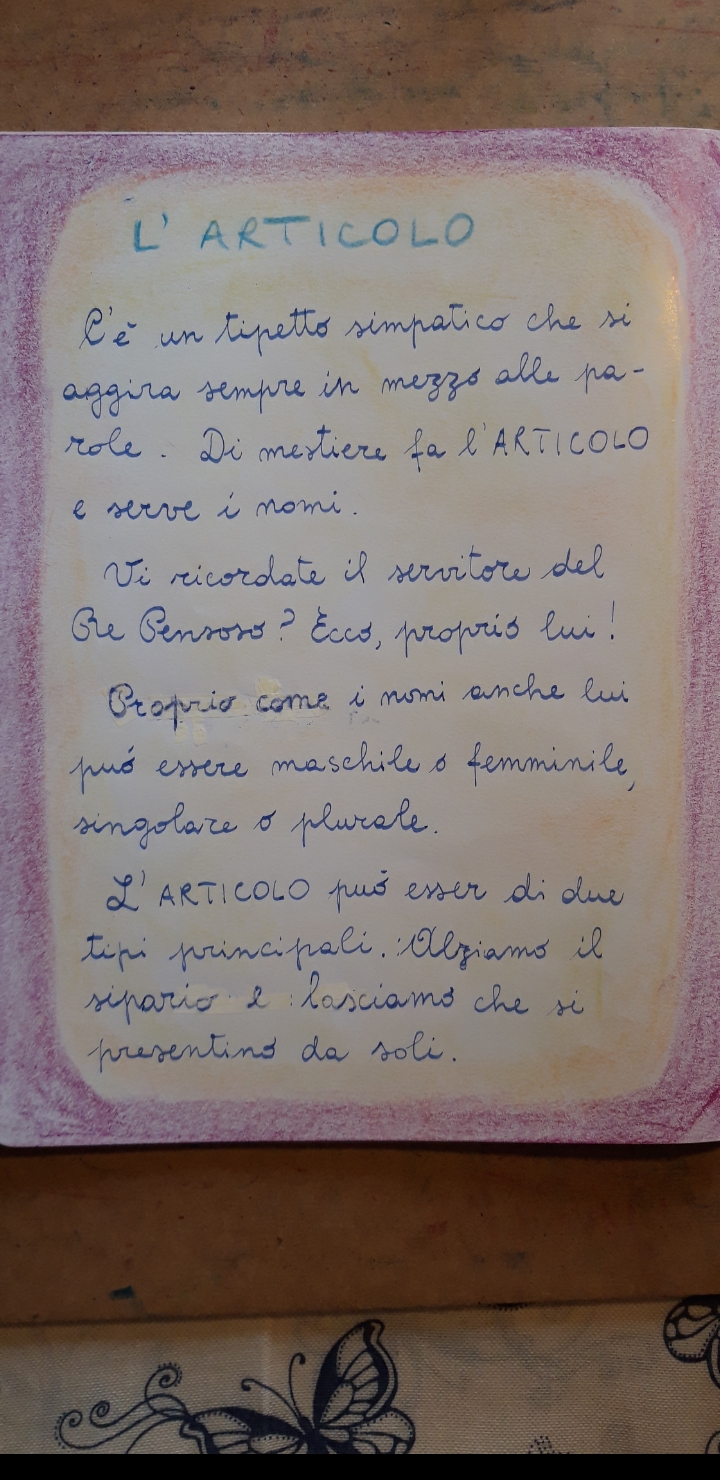 L'ARTICOLO
C'è un tipetto simpatico che si
aggira sempre in mezzo alle pa-
role. Di mestiere fa l'ARTICOLO
e serve i nomi.
Vi ricordate il servitore del
Re Pensoso? Ecco, proprio lui!
Proprio come i nomi anche lui
puó essere maschile o femminile,
singolare o plurale.
L'ARTICOLO puó esser di due
tipi principali. Alziamo il
sipario e lasciamo che si
presentino da soli.